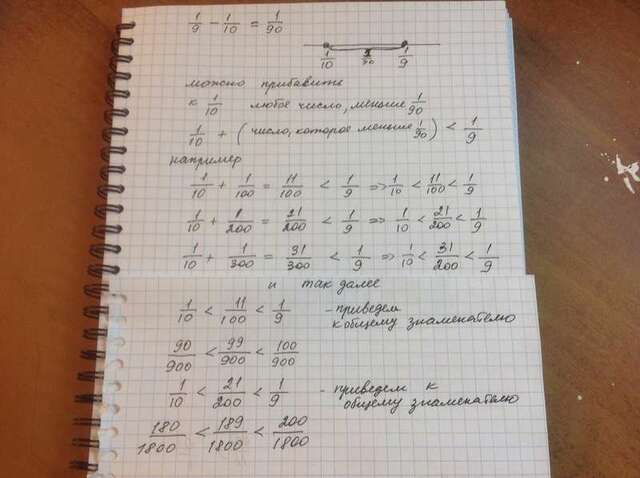 1/9 - 1/10 = 1/90
1/10 1/90 1/9
можно прибавить
к 1/10 любое число, меньше 1/90
1/10 + (число, которое меньше 1/90) < 1/9
например
1/10 + 1/100 = 11/100 < 1/9 => 1/10 < 11/100 < 1/9
1/10 + 1/200 = 21/200 < 1/9 => 1/10 < 21/200 < 1/9
1/10 + 1/300 = 31/300 < 1/9 => 1/10 < 31/200 < 1/9
и так далее
1/10 < 11/100 < 1/9 - приведем
к общему знаменателю
90/900 < 99/900 < 100/900
1/10 < 21/200 < 1/9 - приведем к
общему знаменателю
180/1800 < 189/1800 < 200/1800